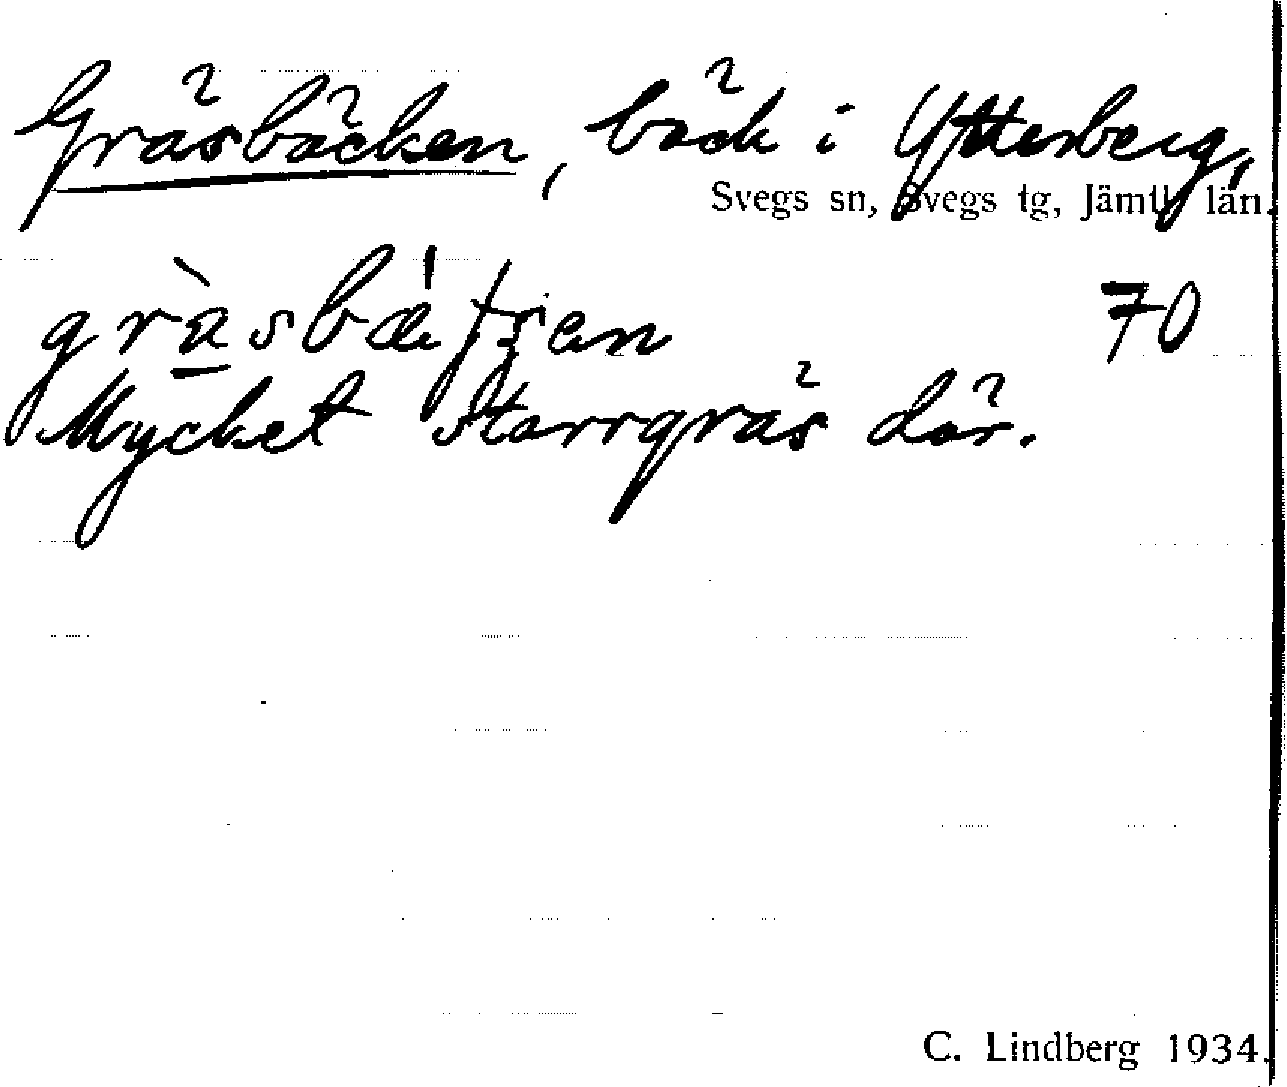 Gräsbäcken, bäck i Ytterberg,
Svegs sn, Svegs tg, Jämtl. län.
70
Mycket starrgräs där.
C. Lindberg 1934.